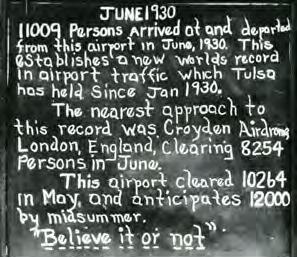 JUNE 1930
11009 Persons Arrived at and departed
from this airport in June, 1930. This
establishes a new worlds record
in airport traffic which Tulsa
has held Since Jan 1930.
The nearest approach to
this record was Croyden Airdrome
London, England, Clearing 8254
Persons in June.
This airport cleared 10264
in May, and anticipates 12000
by midsummer.
"Believe it or not".